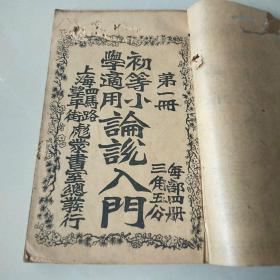 第一冊
每部四册
三角五分
初等小
學適用
論說入門
上海
四馬路
望平街
彪蒙書室總發行